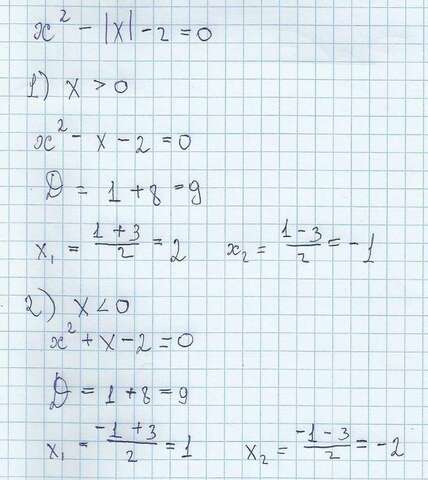 x² - |x| - 2 = 0
1) x > 0
x² - x - 2 = 0
D = 1 + 8 = 9
x₁ = (1 + 3)/2 = 2 x₂ = (1 - 3)/2 = -1
2) x < 0
x² + x - 2 = 0
D = 1 + 8 = 9
x₁ = (-1 + 3)/2 = 1 x₂ = (-1 - 3)/2 = -2